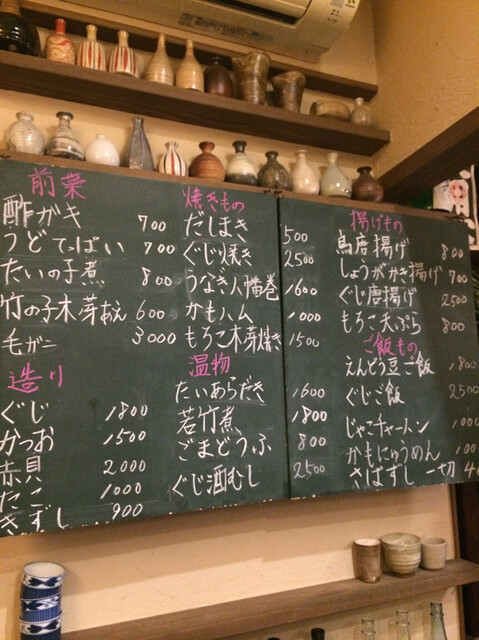 前菜
酢ガキ 700
うどてっぱい 700
たいの子煮 800
竹の子木芽あえ 600
毛ガニ 3000
造り
ぐじ 1800
かつお 1500
赤貝 2000
たこ 1000
きずし 900
焼きもの
だしまき 500
ぐじ焼き 2500
うなぎ八幡巻 1600
かもハム 1000
もちこ木芽焼き 1500
温物
たいあらだき 1600
若竹煮 1800
ごまどうふ 800
ぐじ酒むし 2500
揚げもの
鳥唐揚げ 800
しょうがかき揚げ 700
ぐじ唐揚げ 2500
もちこ天ぷら 800
ご飯もの
えんどう豆ご飯 1800
ぐじご飯 2500
じゃこチャーハン
かもにゅうめん
さばずし 一切